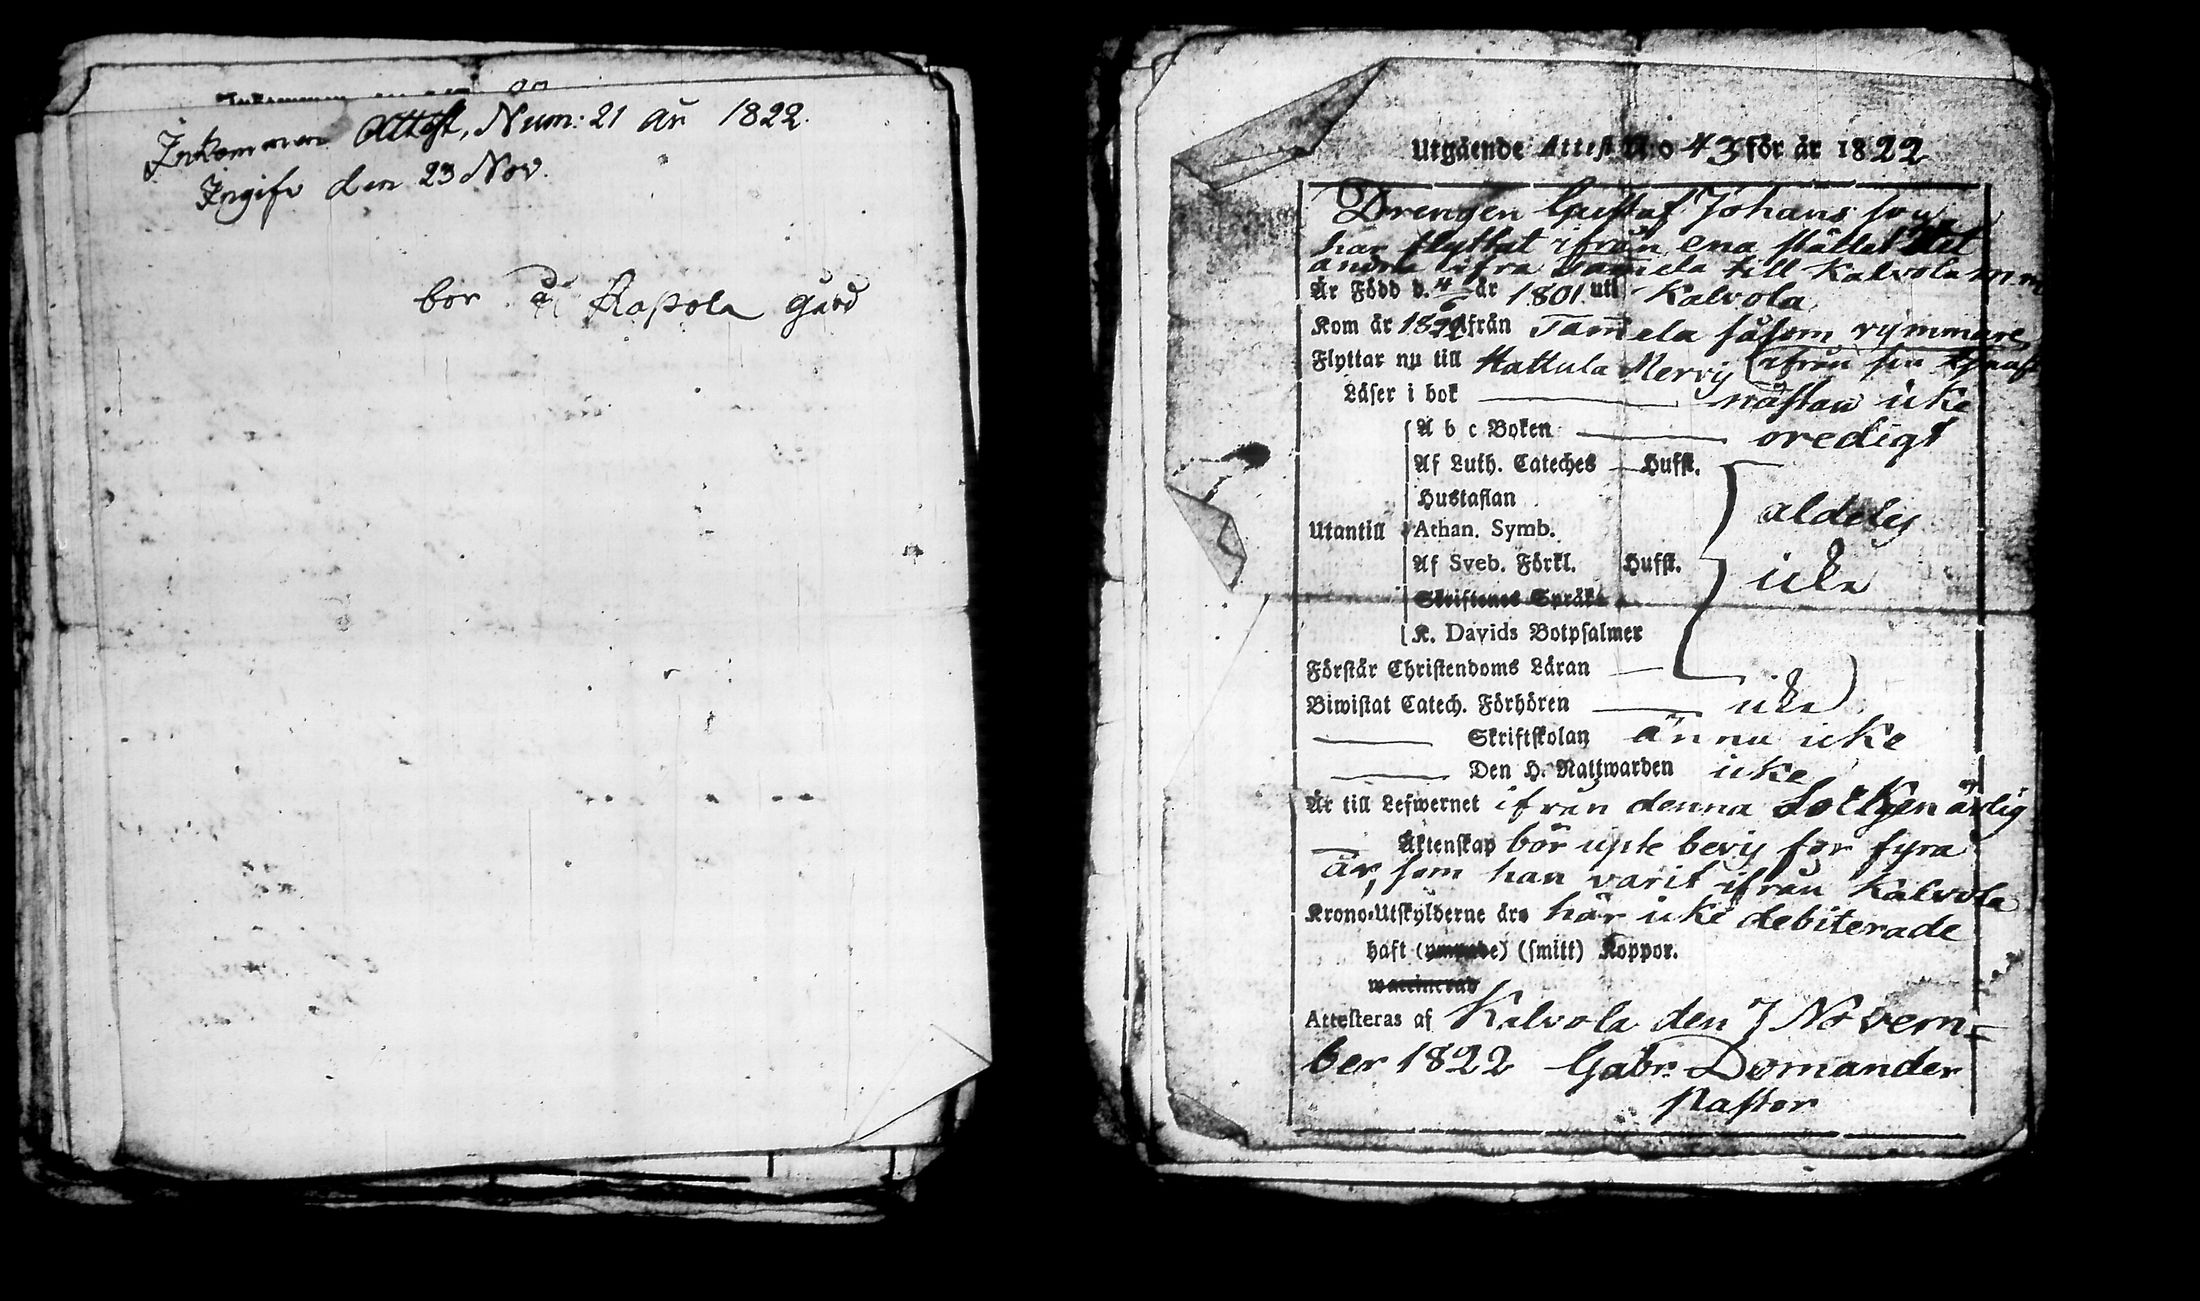 Inkommen Attest, Num: 21 år 1822.
Ingifv den 23 Nov.
bor å Hapola gård
Utgående Attest N:o 43 för år 1822
Drengen Gustaf Johansson
har flyttat ifrån ena stället till
andra ifrå Tamela till Kalvola m.m
Är Född d. 4/6 år 1801 uti Kalvola
Kom år 1822 ifrån Tamela såsom rymmare
Flyttar nu till Hattula Mervi (ifrån sin tjenst
Läser i bok nästan icke
A b c Boken oredigt
Af Luth. Cateches Hufst.
Hustaflan
aldeles
Utantill Athan. Symb.
Af Sveb. Förkl. Hufst.
icke
Skriftenes Språk
K. Davids Botpsalmer
Förstår Christendoms Läran
Biwistat Catech. Förhören icke
Skriftskolan ännu icke
Den H. Nattwarden icke
Är till Lefwernet ifrån denna Sockgen ärlig
Äktenskap bör upte bevis for fyra
år, som han varit ifrån Kalvola
Krono-Utskylderne äro här icke debiterade
haft (smitt) Koppor.
Attesteras af Kalvola den 7 Novem-
ber 1822 Gabr. Domander
Pastor